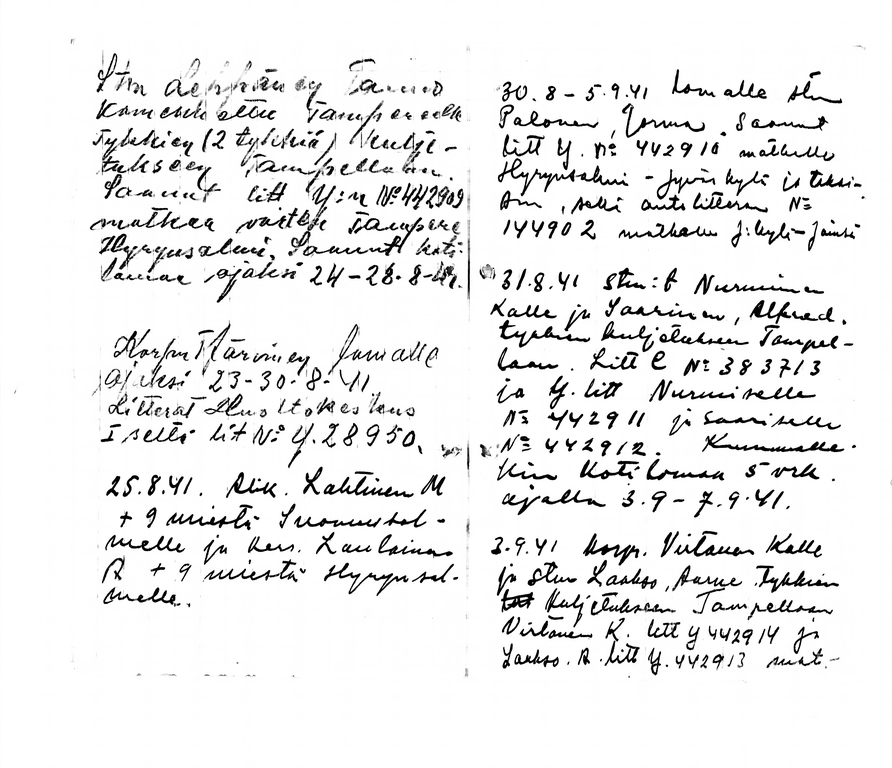 Stm Leppänen Tauno
Komennettu Tampereelle
Tykkien (2 tykkiä) kulje-
tukseen Tampellaan.
Saanut litt Y:n № 442909
matkaa varten Tampere
Hyrynsalmi. Saanut koti-
lomaa ajaksi 24-28-8-41.
Korpr Järvinen lomalle
ajaksi 23-30-8-41
Litterat Huoltokeskus
I seltä lit № Y.28950.
25.8.41. Alik. Lahtinen M
+ 9 miestä Suomussal-
melle ja kers. Laulainen
A + 9 miestä Hyrynsal-
melle.
30.8-5.9.41 lomalle stm
Palonen, Jorma. Saanut
litt Y. № 442910 matkalle
Hyrynsalmi - Jyväskylä ja
sekä autolitteran №
144902 matkalle J:kylä-Jämsä
31.8.41 stm:t Nurminen
Kalle ja Saarinen, Alfred.
tykkien kuljetukseen Tampel-
laan. Litt C № 383713
ja Y. litt Nurmiselle
№ 442911 ja Saariselle
№ 442912. Kummalle-
kin kotilomaa 5 vrk.
ajalla 3.9-7.9.41.
3.9.41 korpr. Virtanen Kalle
ja stm Laakso, Aarne Tykkien
kuljetukseen Tampellaan
Virtanen K. litt Y 442914 ja
Laakso. A. litt Y. 442913 mat-